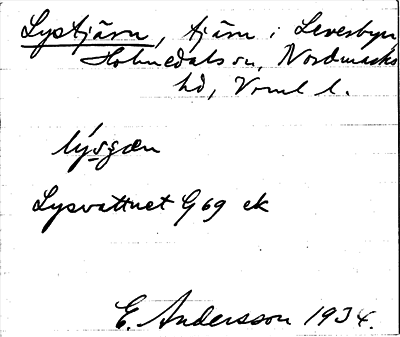 Lystjärn, tjärn i Levesbyn,
Holmedals sn, Nordmarks
hd, Vrml l.
lýsgæn
Lysvattnet G 69 ek
E. Andersson 1934.